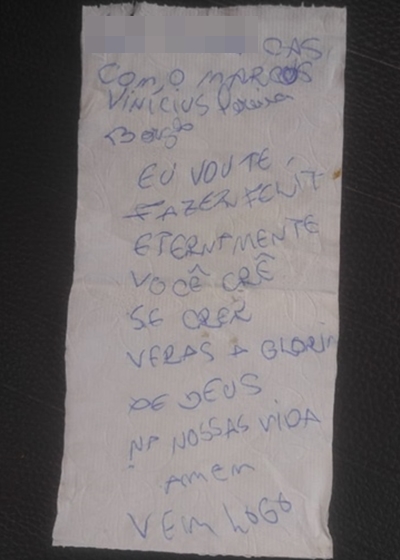 CAS
COM O MARCOS
VINÍCIUS Pereira
EU VOU TE
FAZER FELIZ
ETERNAMENTE
VOCÊ CRÊ
SE CRER
VERAS A GLORIA
DE DEUS
NA NOSSAS VIDA
AMEM
VEIM LOGO